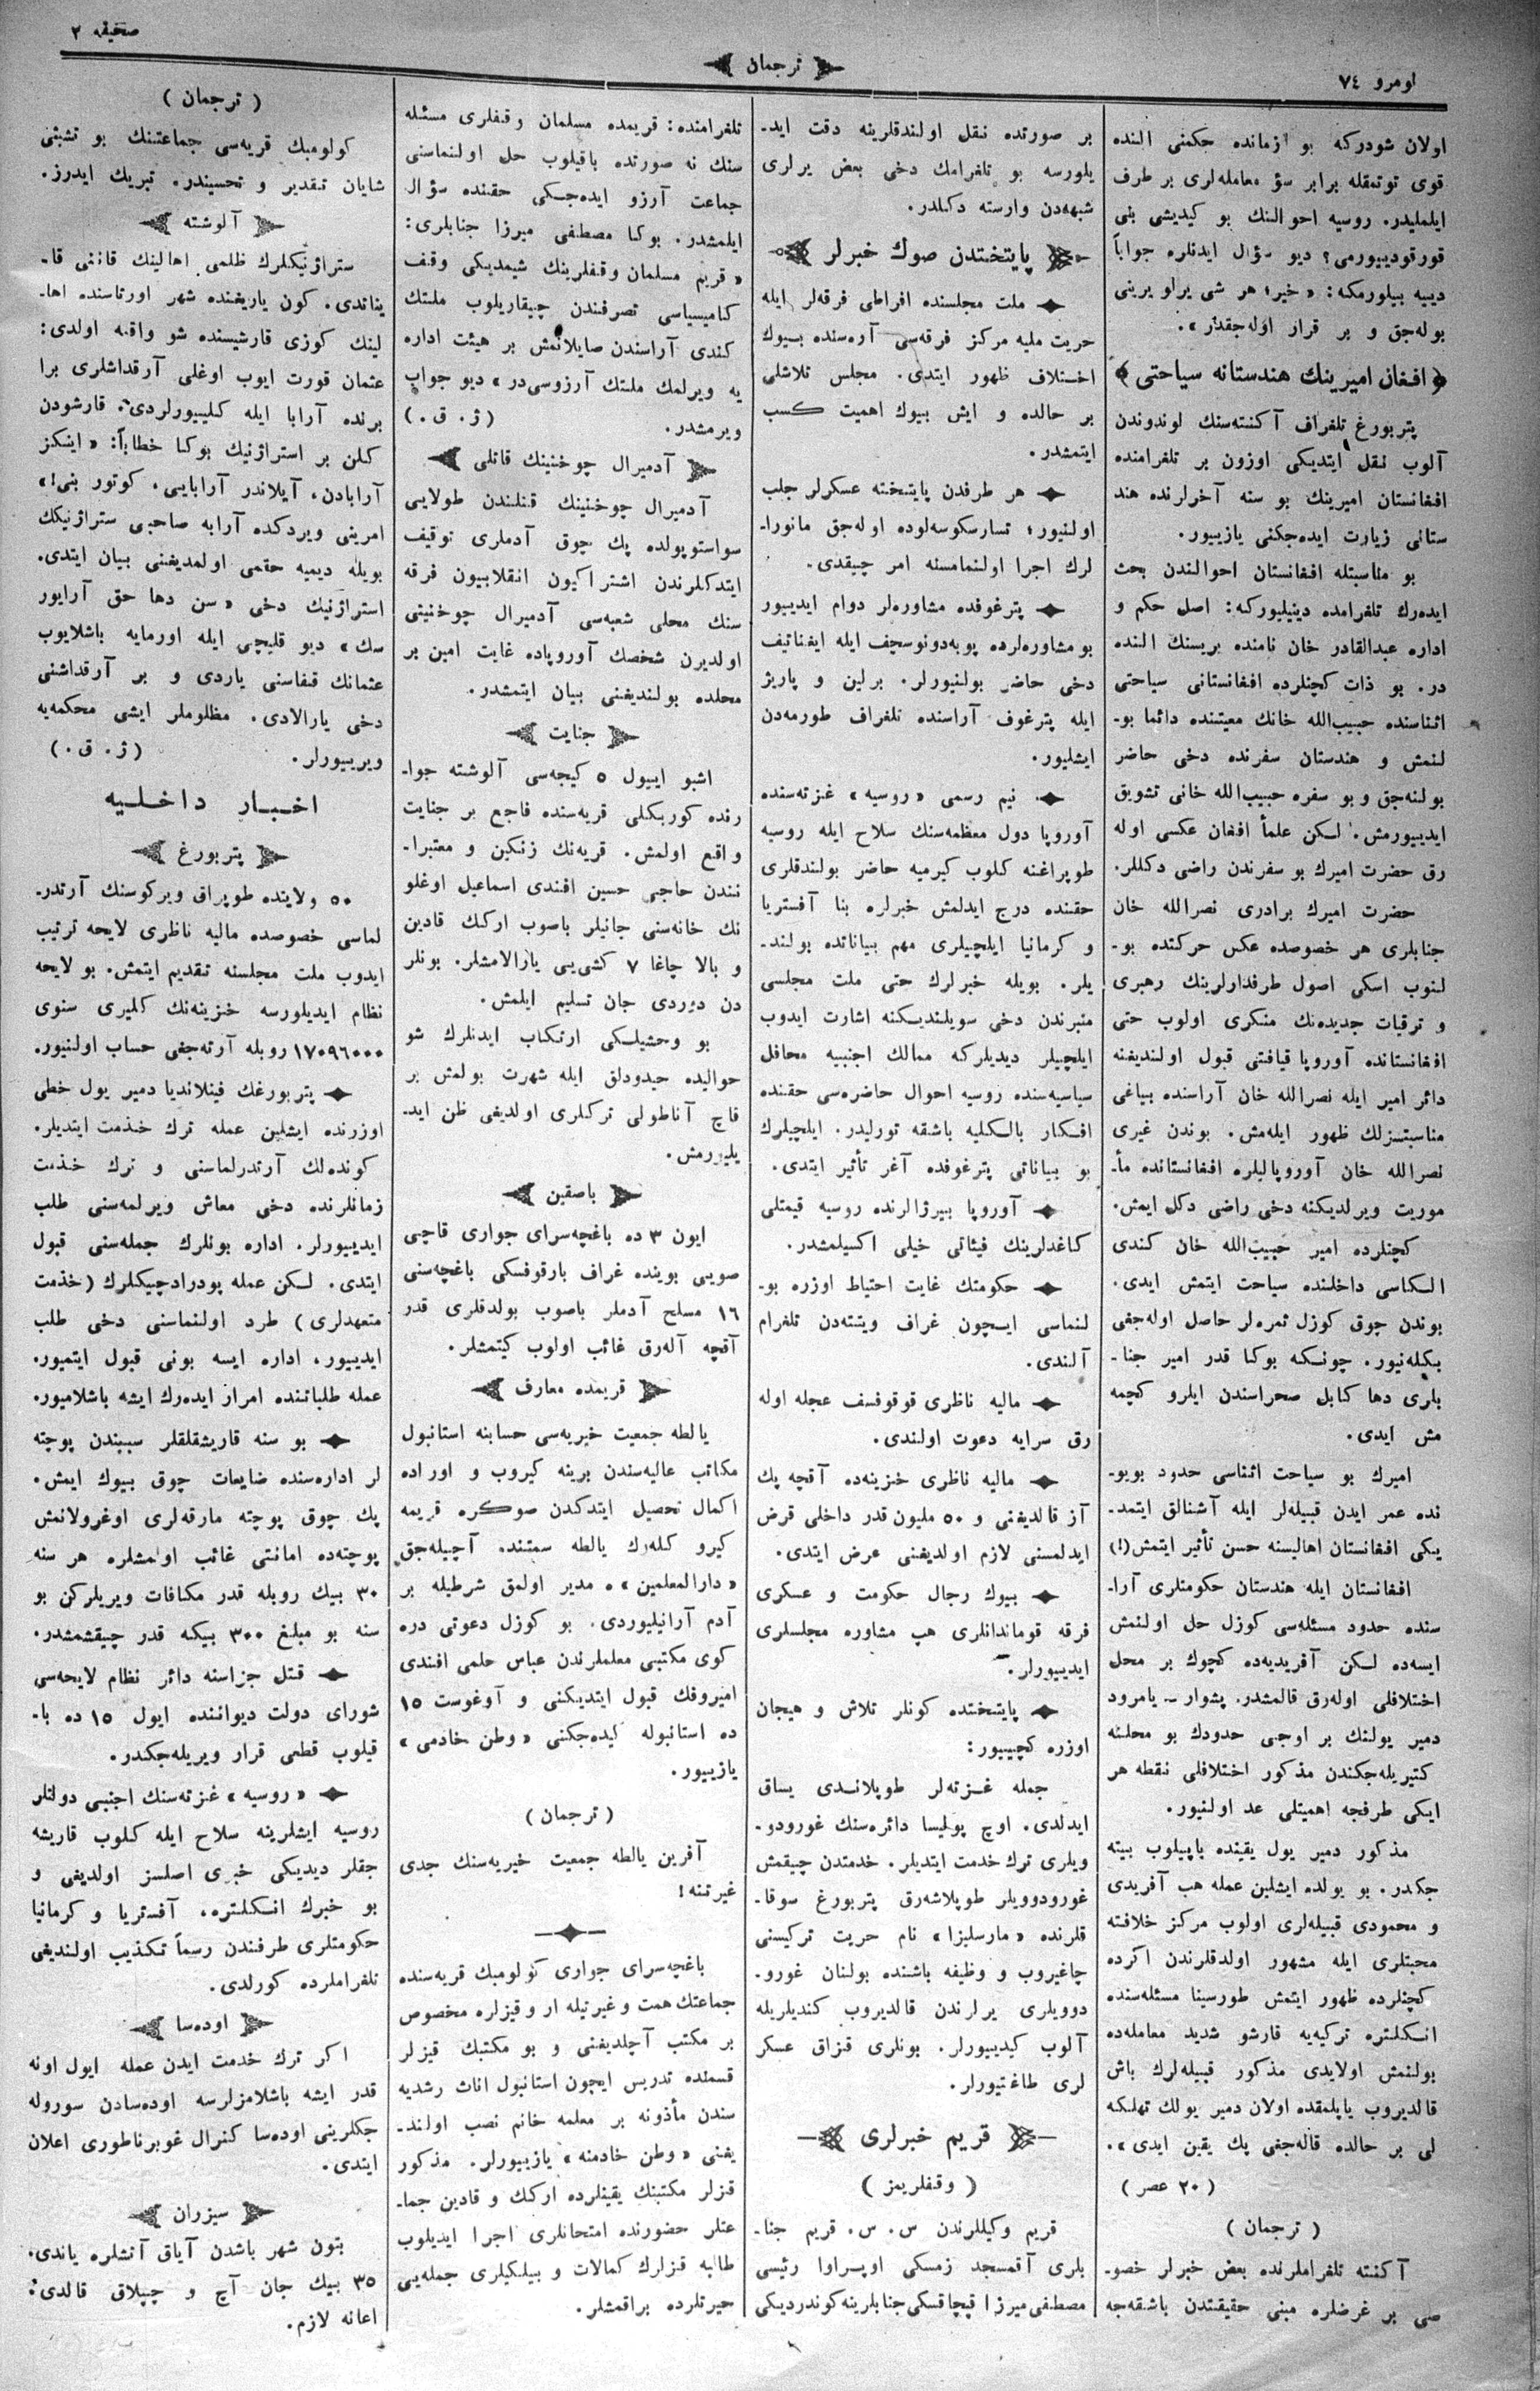 نومرو ٧٤
ترجمان
صحیفه ٢
اولان شودركه بو ازمانده حكمنی النده
قوی توتمقله برابر سؤ معامله‌لری بر طرف
ایلملیدر. روسیه احوالنك بو كیدیشی بنی
قورقودییورمی؟ دیو سؤال ایدنلره جواباً
دییه بیلورمكه: « خیر؛ هر شی یرلو یرینی
بوله‌جق و بر قرار اوله‌جقدر ».
﴿ افغان امیرینك هندستانه سیاحتی ﴾
پتربورغ تلغراف آكنته‌سنك لوندوندن
آلوب نقل ایتدیكی اوزون بر تلغرامنده
افغانستان امیرینك بو سنه آخرلرنده هند
ستانی زیارت ایده‌جكنی یازییور.
بو مناسبتله افغانستان احوالندن بحث
ایده‌رك تلغرامده دینیلیوركه: اصل حكم و
اداره عبدالقادر خان نامنده بریسنك النده
در. بو ذات كچنلرده افغانستانی سیاحتی
اثناسنده حبیب‌الله خانك معیتنده دائما بو-
لنمش و هندستان سفرنده دخی حاضر
بولنه‌جق و بو سفره حبیب‌الله خانی تشویق
ایدییورمش. لكن علمأ افغان عكسی اوله
رق حضرت امیرك بو سفرندن راضی دكللر.
حضرت امیرك برادری نصرالله خان
جنابلری هر خصوصده عكس حركتده بو-
لنوب اسكی اصول طرفدارلرینك رهبری
و ترقیات جدیده‌نك منكری اولوب حتی
افغانستانده آوروپا قیافتی قبول اولندیغنه
دائر امیر ایله نصرالله خان آراسنده بیاغی
مناسبتسزلك ظهور ایله‌مش. بوندن غیری
نصرالله خان آوروپالیلره افغانستانده مأ-
موریت ویرلدیكنه دخی راضی دكل ایمش.
كچنلرده امیر حبیب‌الله خان كندی
الكاسی داخلنده سیاحت ایتمش ایدی.
بوندن چوق كوزل ثمره‌لر حاصل اوله‌جغی
بكله‌نیور. چونكه بوكا قدر امیر جنا-
بلری دها كابل صحراسندن ایلرو كچمه
مش ایدی.
امیرك بو سیاحت اثناسی حدود بویو-
نده عمر ایدن قبیله‌لر ایله آشنالق ایتمد-
یكی افغانستان اهالیسنه حسن تأثیر ایتمش(!)
افغانستان ایله هندستان حكومتلری آرا-
سنده حدود مسئله‌سی كوزل حل اولنمش
ایسه‌ده لكن آفریدیه‌ده كچوك بر محل
اختلافلی اوله‌رق قالمشدر. پشوار - یامرود
دمیر یولنك بر اوجی حدودك بو محلنه
كتیریله‌جكندن مذكور اختلافلی نقطه هر
ایكی طرفجه اهمیتلی عد اولنیور.
مذكور دمیر یول یقینده یاپیلوب بیته
جكدر. بو یولده ایشلین عمله هب آفریدی
و محمودی قبیله‌لری اولوب مركز خلافته
محبتلری ایله مشهور اولدقلرندن اكرده
كچنلرده ظهور ایتمش طورسینا مسئله‌سنده
انكلتره تركیه‌یه قارشو شدید معامله‌ده
بولنمش اولایدی مذكور قبیله‌لرك باش
قالدیروب یاپلمقده اولان دمیر یولك تهلكه
لی بر حالده قاله‌جغی پك یقین ایدی ».
( ٢٠ عصر )
( ترجمان )
آكنته تلغراملرنده بعض خبرلر خصو-
صی بر غرضلره مبنی حقیقتدن باشقه‌جه
بر صورتده نقل اولندقلرینه دقت اید-
یلورسه بو تلغرامك دخی بعض یرلری
شبهه‌دن وارسته دكلدر.
پایتختدن صوك خبرلر
ملت مجلسنده افراطی فرقه‌لر ایله
حریت ملیه مركز فرقه‌سی آره‌سنده بیوك
اختلاف ظهور ایتدی. مجلس تلاشلی
بر حالده و ایش بیوك اهمیت كسب
ایتمشدر.
هر طرفدن پایتخته عسكرلر جلب
اولنیور؛ تسارسكوسه‌لوده اوله‌جق مانورا-
لرك اجرا اولنمامسنه امر چیقدی.
پترغوفده مشاوره‌لر دوام ایدییور
بو مشاوره‌لرده پوبه‌دونوسچف ایله ایغناتیف
دخی حاضر بولنیورلر. برلین و پاریژ
ایله پترغوف آراسنده تلغراف طورمه‌دن
ایشلیور.
نیم رسمی « روسیه » غزته‌سنده
آوروپا دول معظمه‌سنك سلاح ایله روسیه
طوپراغنه كلوب كیرمیه حاضر بولندقلری
حقنده درج ایدلمش خبرلره بنا آفستریا
و كرمانیا ایلچیلری مهم بیاناتده بولند-
یلر. بویله خبرلرك حتی ملت مجلسی
منبرندن دخی سویلندیكنه اشارت ایدوب
ایلچیلر دیدیلركه ممالك اجنبیه محافل
سیاسیه‌سنده روسیه احوال حاضره‌سی حقنده
افكار بالكلیه باشقه تورلیدر. ایلچیلرك
بو بیاناتی پترغوفده آغر تأثیر ایتدی.
آوروپا بیرژالرنده روسیه قیمتلی
كاغدلرینك فیئاتی خیلی اكسیلمشدر.
حكومتك غایت احتیاط اوزره بو-
لنماسی ایچون غراف ویتته‌دن تلغرام
آلندی.
مالیه ناظری قوقوفسف عجله اوله
رق سرایه دعوت اولندی.
مالیه ناظری خزینه‌ده آقچه پك
آز قالدیغنی و ٥٠ ملیون قدر داخلی قرض
ایدلمسنی لازم اولدیغنی عرض ایتدی.
بیوك رجال حكومت و عسكری
فرقه قوماندانلری هپ مشاوره مجلسلری
ایدییورلر.
پایتختده كونلر تلاش و هیجان
اوزره كچییور:
جمله غزته‌لر طوپلاندی یساق
ایدلدی. اوچ پولیسا دائره‌سنك غورودو-
ویلری ترك خدمت ایتدیلر. خدمتدن چیقمش
غورودوویلر طوپلاشه‌رق پتربورغ سوقا-
قلرنده « مارسلیزا » نام حریت تركیسنی
چاغیروب و وظیفه باشنده بولنان غورو-
دوویلری یرلرندن قالدیروب كندیلریله
آلوب كیدییورلر. بونلری قزاق عسكر
لری طاغتیورلر.
قریم خبرلری
( وقفلریمز )
قریم وكیللرندن س. س. قریم جنا-
بلری آقمسجد زمسكی اوپراوا رئیسی
مصطفی میرزا قپچاقسكی جنابلرینه كوندردیكی
تلغرامنده: قریمده مسلمان وقفلری مسئله
سنك نه صورتده باقیلوب حل اولنماسنی
جماعت آرزو ایده‌جكی حقنده سؤال
ایلمشدر. بوكا مصطفی میرزا جنابلری:
« قریم مسلمان وقفلرینك شیمدیكی وقف
كامیسیاسی تصرفندن چیقاریلوب ملتك
كندی آراسندن صایلانمش بر هیئت اداره
یه ویرلمك ملتك آرزوسی‌در » دیو جواب
ویرمشدر.
( ژ. ق. )
آدمیرال چوخنینك قاتلی
آدمیرال چوخنینك قتلندن طولایی
سواستوپولده پك چوق آدملری توقیف
ایتدكلرندن اشتراكیون انقلابیون فرقه
سنك محلی شعبه‌سی آدمیرال چوخنینی
اولدیرن شخصك آوروپاده غایت امین بر
محلده بولندیغنی بیان ایتمشدر.
جنایت
اشبو ایپول ٥ كیجه‌سی آلوشته جوا-
رنده كوربكلی قریه‌سنده فاجع بر جنایت
واقع اولمش. قریه‌نك زنكین و معتبرا-
نندن حاجی حسین افندی اسماعیل اوغلو
نك خانه‌سنی جانیلر باصوب اركك قادین
و بالا چاغا ٧ كشی‌یی یارالامشلر. بونلر
دن دوردی جان تسلیم ایلمش.
بو وحشیلكی ارتكاب ایدنلرك شو
حوالیده حیدودلق ایله شهرت بولمش بر
قاچ آناطولی تركلری اولدیغی ظن اید-
یلیورمش.
باصقین
ایون ٣ ده باغچه‌سرای جواری قاچی
صویی بوینده غراف بارقوفسكی باغچه‌سنی
١٦ مسلح آدملر باصوب بولدقلری قدر
آقچه آله‌رق غائب اولوب كیتمشلر.
قریمده معارف
یالطه جمعیت خیریه‌سی حسابنه استانبول
مكاتب عالیه‌سندن برینه كیروب و اوراده
اكمال تحصیل ایتدكدن صوكره قریمه
كیرو كله‌رك یالطه سمتنده آچیله‌جق
« دارالمعلمین » ه مدیر اولمق شرطیله بر
آدم آرانیلیوردی. بو كوزل دعوتی دره
كوی مكتبی معلملرندن عباس حلمی افندی
امیروفك قبول ایتدیكنی و آوغوست ١٥
ده استانبوله كیده‌جكنی « وطن خادمی »
یازییور.
( ترجمان )
آفرین یالطه جمعیت خیریه‌سنك جدی
غیرتنه!
باغچه‌سرای جواری كولومبك قریه‌سنده
جماعتك همت و غیرتیله ار و قیزلره مخصوص
بر مكتب آچلدیغنی و بو مكتبك قیزلر
قسمنده تدریس ایچون استانبول اناث رشدیه
سندن مأذونه بر معلمه خانم نصب اولند-
یغنی « وطن خادمنه » یازییورلر. مذكور
قزلر مكتبنك یقینلرده اركك و قادین جما-
عتلر حضورنده امتحانلری اجرا ایدیلوب
طالبه قزلرك كمالات و بیلیكیلری جمله‌یی
حیرتلرده براقمشلر.
( ترجمان )
كولومبك قریه‌سی جماعتنك بو تشبثی
شایان تقدیر و تحسیندر. تبریك ایدرز.
آلوشته
ستراژنیكلرك ظلمی اهالینك قاننی قا-
یناتدی. كون یاریغنده شهر اورتاسنده اها-
لینك كوزی قارشیسنده شو واقعه اولدی:
عثمان قورت ایوب اوغلی آرقداشلری برا
برنده آرابا ایله كلییورلردی. قارشودن
كلن بر استراژنیك بوكا خطاباً: « اینكز
آرابادن، آیلاندر آرابایی، كوتور بنی! »
امرینی ویردكده آرابه صاحبی ستراژنیكك
بویله دیمیه حقمی اولمدیغنی بیان ایتدی.
استراژنیك دخی « سن دها حق آرایور
سك » دیو قلیچی ایله اورمایه باشلایوب
عثمانك قفاسنی یاردی و بر آرقداشنی
دخی یارالادی. مظلوملر ایشی محكمه‌یه
ویرییورلر.
( ژ. ق. )
اخبار داخلیه
پتربورغ
٥٠ ولایتده طوپراق ویركوسنك آرتدر-
لماسی خصوصده مالیه ناظری لایحه ترتیب
ایدوب ملت مجلسنه تقدیم ایتمش. بو لایحه
نظام ایدیلورسه خزینه‌نك كلیری سنوی
١٧٠٩٦٠٠٠ روبله آرته‌جغی حساب اولنیور.
پتربورغك فینلاندیا دمیر یول خطی
اوزرنده ایشلین عمله ترك خذمت ایتدیلر.
كونده‌لك آرتدرلماسنی و ترك خذمت
زمانلرنده دخی معاش ویرلمه‌سنی طلب
ایدییورلر. اداره بونلرك جمله‌سنی قبول
ایتدی. لكن عمله پودرادچیكلرك (خذمت
متعهدلری) طرد اولنماسنی دخی طلب
ایدییور، اداره ایسه بونی قبول ایتمیور.
عمله طلباتنده امرار ایده‌رك ایشه باشلامیور.
بو سنه قاریشقلقلر سببندن پوچته
لر اداره‌سنده ضایعات چوق بیوك ایمش.
پك چوق پوچته مارقه‌لری اوغرولانمش
پوچته‌ده امانتی غائب اولمشلره هر سنه
٣٠ بیك روبله قدر مكافات ویریلركن بو
سنه بو مبلغ ٣٠٠ بیكه قدر چیقشمشدر.
قتل جزاسنه دائر نظام لایحه‌سی
شورای دولت دیواننده ایول ١٥ ده با-
قیلوب قطعی قرار ویریله‌جكدر.
« روسیه » غزته‌سنك اجنبی دولتلر
روسیه ایشلرینه سلاح ایله كلوب قاریشه
جقلر دیدیكی خبری اصلسز اولدیغی و
بو خبرك انكلتره، آفستریا و كرمانیا
حكومتلری طرفندن رسماً تكذیب اولندیغی
تلغراملرده كورلدی.
اوده‌سا
اكر ترك خدمت ایدن عمله ایول اونه
قدر ایشه باشلامزلرسه اوده‌سادن سوروله
جكلرینی اوده‌سا كنرال غوبرناطوری اعلان
ایتدی.
سیزران
بتون شهر باشدن آیاق آتشلره یاندی.
٣٥ بیك جان آچ و چپلاق قالدی.
اعانه لازم.